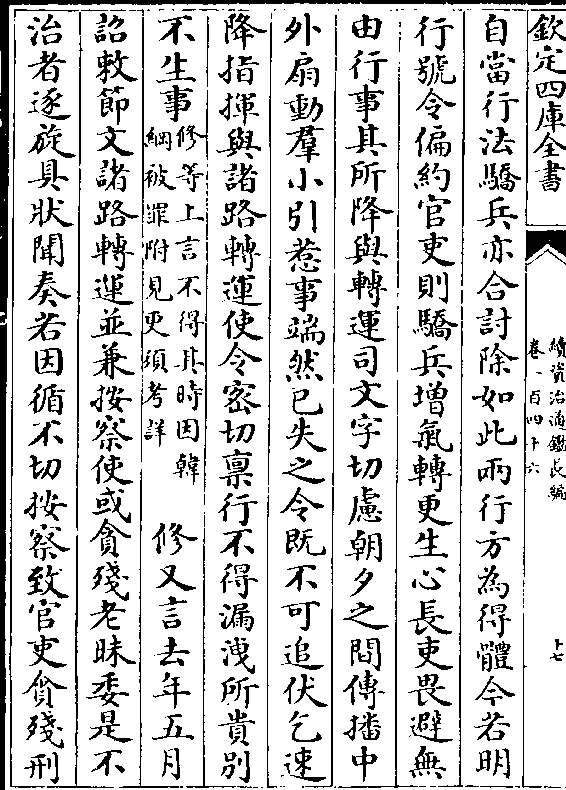 欽定四庫全書
續資治通鑑長編
卷一百四十六
十七
自當行法驕兵亦合討除如此兩行方為得體今若明
行號令偏約官吏則驕兵增氣轉更生心長吏畏避無
由行事其所降與轉運司文字切慮朝夕之間傳播中
外扇動羣小引惹事端然已失之令既不可追伏乞速
降指揮與諸路轉運使令密切稟行不得漏洩所貴別
不生事
修等上言不得其時因韓
綱被罪附見更須考詳
修又言去年五月
詔敕節文諸路轉運並兼按察使或貪殘老昧委是不
治者逐旋具狀聞奏若因循不切按察致官吏貪殘刑